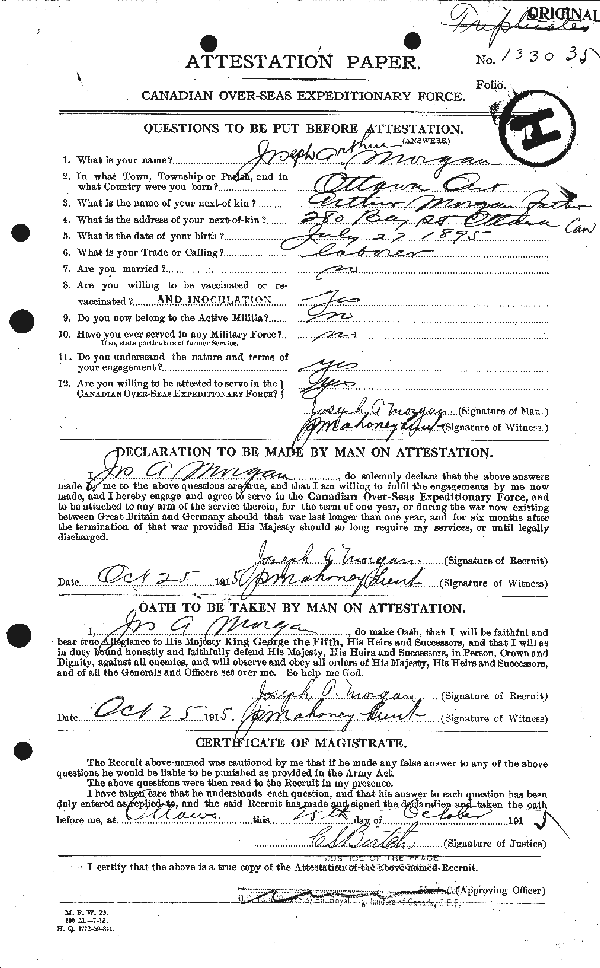 ORIGINAL
Triplicate
ATTESTATION PAPER.
No. 133035
Folio.
CANADIAN OVER-SEAS EXPEDITIONARY FORCE.
H
QUESTIONS TO BE PUT BEFORE ATTESTATION.
(ANSWERS)
1. What is your name? Joseph Arthur Morgan
2. In what Town, Township or Parish, and in
what Country were you born? Ottawa Ont
3. What is the name of your next-of-kin? Arthur Morgan Father
4. What is the address of your next-of-kin? 280 Bay St Ottawa Can
5. What is the date of your birth? July 27 1895
6. What is your Trade or Calling? laborer
7. Are you married? no
8. Are you willing to be vaccinated or re-
vaccinated? AND INOCULATION Yes
9. Do you now belong to the Active Militia? No
10. Have you ever served in any Military Force? no
If so, state particulars of former Service.
11. Do you understand the nature and terms of
your engagement? yes
12. Are you willing to be attested to serve in the
CANADIAN OVER-SEAS EXPEDITIONARY FORCE? yes
Joseph A Morgan (Signature of Man.)
JP Mahoney Lieut (Signature of Witness)
DECLARATION TO BE MADE BY MAN ON ATTESTATION.
I, Jos A Morgan, do solemnly declare that the above answers
made by me to the above questions are true, and that I am willing to fulfil the engagements by me now
made, and I hereby engage and agree to serve in the Canadian Over-Seas Expeditionary Force, and
to be attached to any arm of the service therein, for the term of one year, or during the war now existing
between Great Britain and Germany should that war last longer than one year, and for six months after
the termination of that war provided His Majesty should so long require my services, or until legally
discharged.
Joseph A Morgan (Signature of Recruit)
Date Oct 25 1915 JP Mahoney Lieut (Signature of Witness)
OATH TO BE TAKEN BY MAN ON ATTESTATION.
I, Jos A Morgan, do make Oath, that I will be faithful and
bear true Allegiance to His Majesty King George the Fifth, His Heirs and Successors, and that I will as
in duty bound honestly and faithfully defend His Majesty, His Heirs and Successors, in Person, Crown and
Dignity, against all enemies, and will observe and obey all orders of His Majesty, His Heirs and Successors,
and of all the Generals and Officers set over me. So help me God.
Joseph A. Morgan (Signature of Recruit)
Date Oct 25 1915. JP Mahoney Lieut (Signature of Witness)
CERTIFICATE OF MAGISTRATE.
The Recruit above-named was cautioned by me that if he made any false answer to any of the above
questions he would be liable to be punished as provided in the Army Act.
The above questions were then read to the Recruit in my presence.
I have taken care that he understands each question, and that his answer to each question has been
duly entered as replied to, and the said Recruit has made and signed the declaration and taken the oath
before me, at Ottawa this 25th day of October 1915
(Signature of Justice)
JUSTICE OF THE PEACE
I certify that the above is a true copy of the Attestation of the above-named Recruit.
(Approving Officer)
M. F. W. 23.